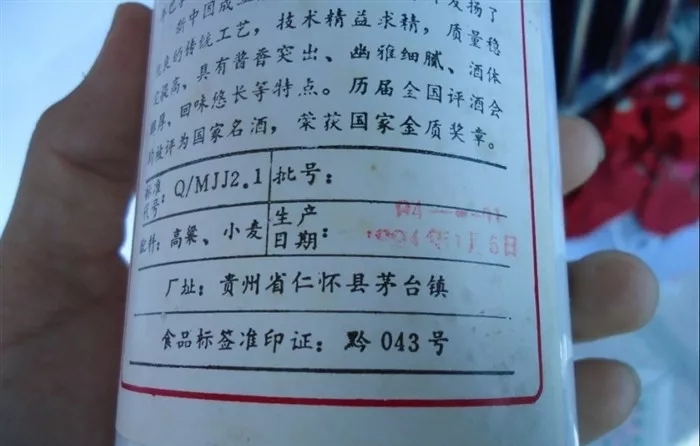 新中国成
发扬了
的传统工艺，技术精益求精，质量稳
定提高，具有酱香突出、幽雅细腻、酒体
醇厚、回味悠长等特点。历届全国评酒会
被评为国家名酒，荣获国家金质奖章。
标准代号：Q/MJJ2.1 批号：
配料：高粱、小麦 生产日期：1994年1月5日
厂址：贵州省仁怀县茅台镇
食品标签准印证：黔043号